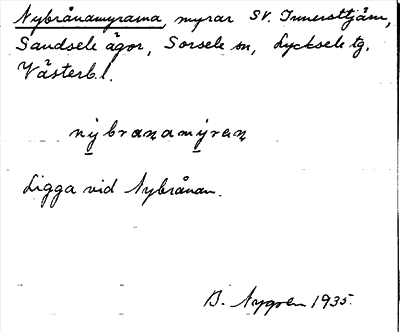 Nybrånamyrarna, myrar SV. Innersttjärn,
Sandsele ägor, Sorsele sn, Lycksele tg.
Västerb. l.
nybranamýran
Ligga vid Nybrånan.
B. Nygren 1935.